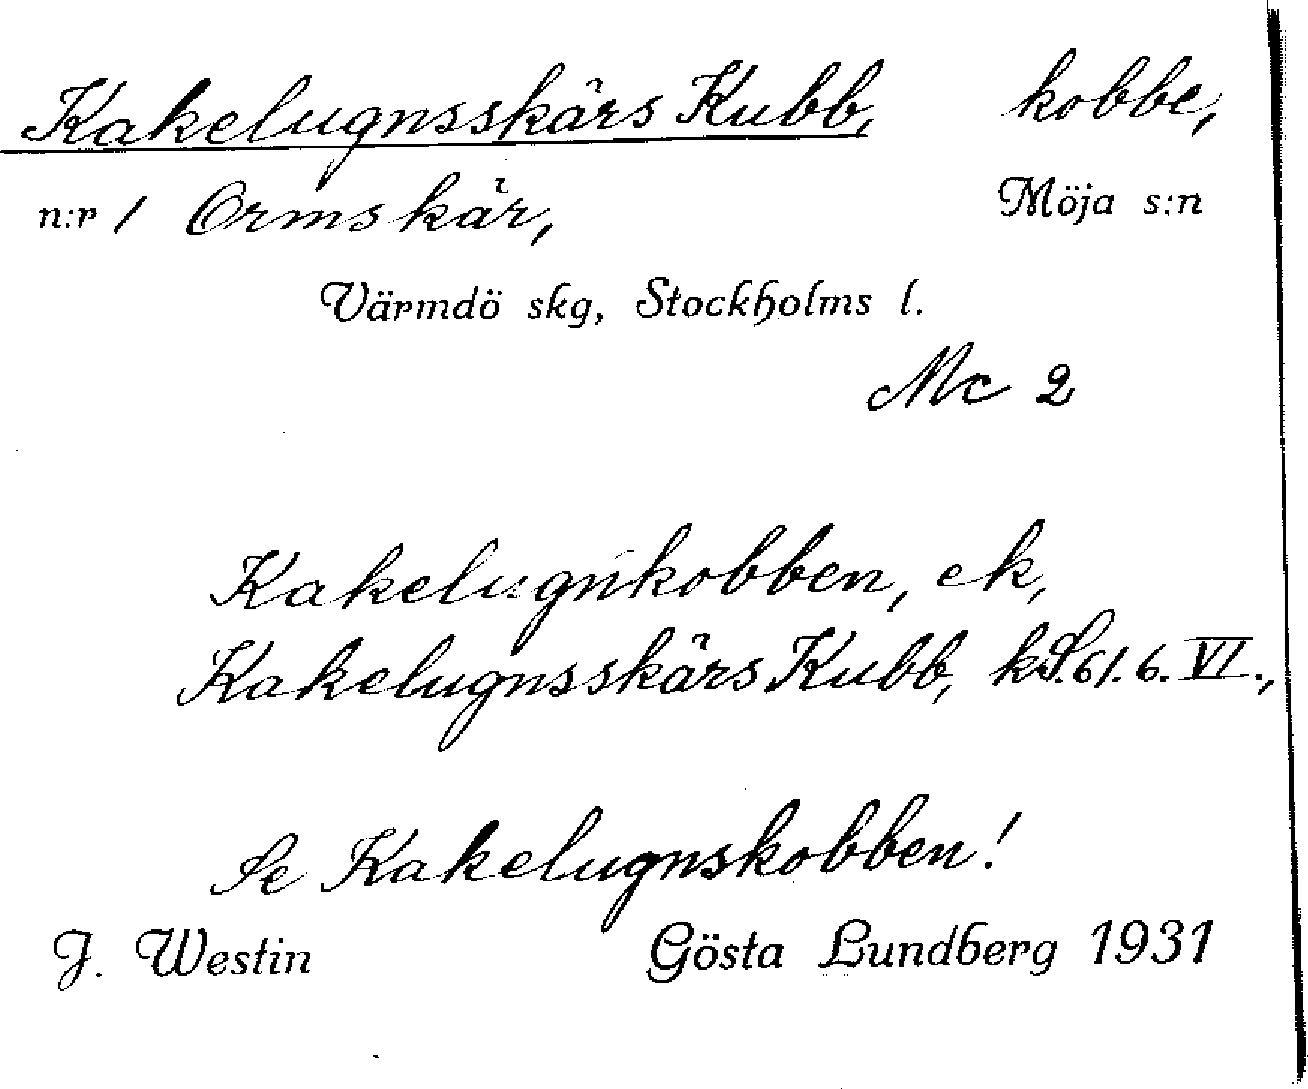 Kakelugnsskärs Kubb, kobbe,
n:r / Ormskär, Möja s:n
Värmdö skg, Stockholms l.
Mc 2
Kakelugnkobben, ek,
Kakelugnsskärs Kubb, kS.61.6.VI.,
Se Kakelugnskobben!
J. Westin Gösta Lundberg 1931